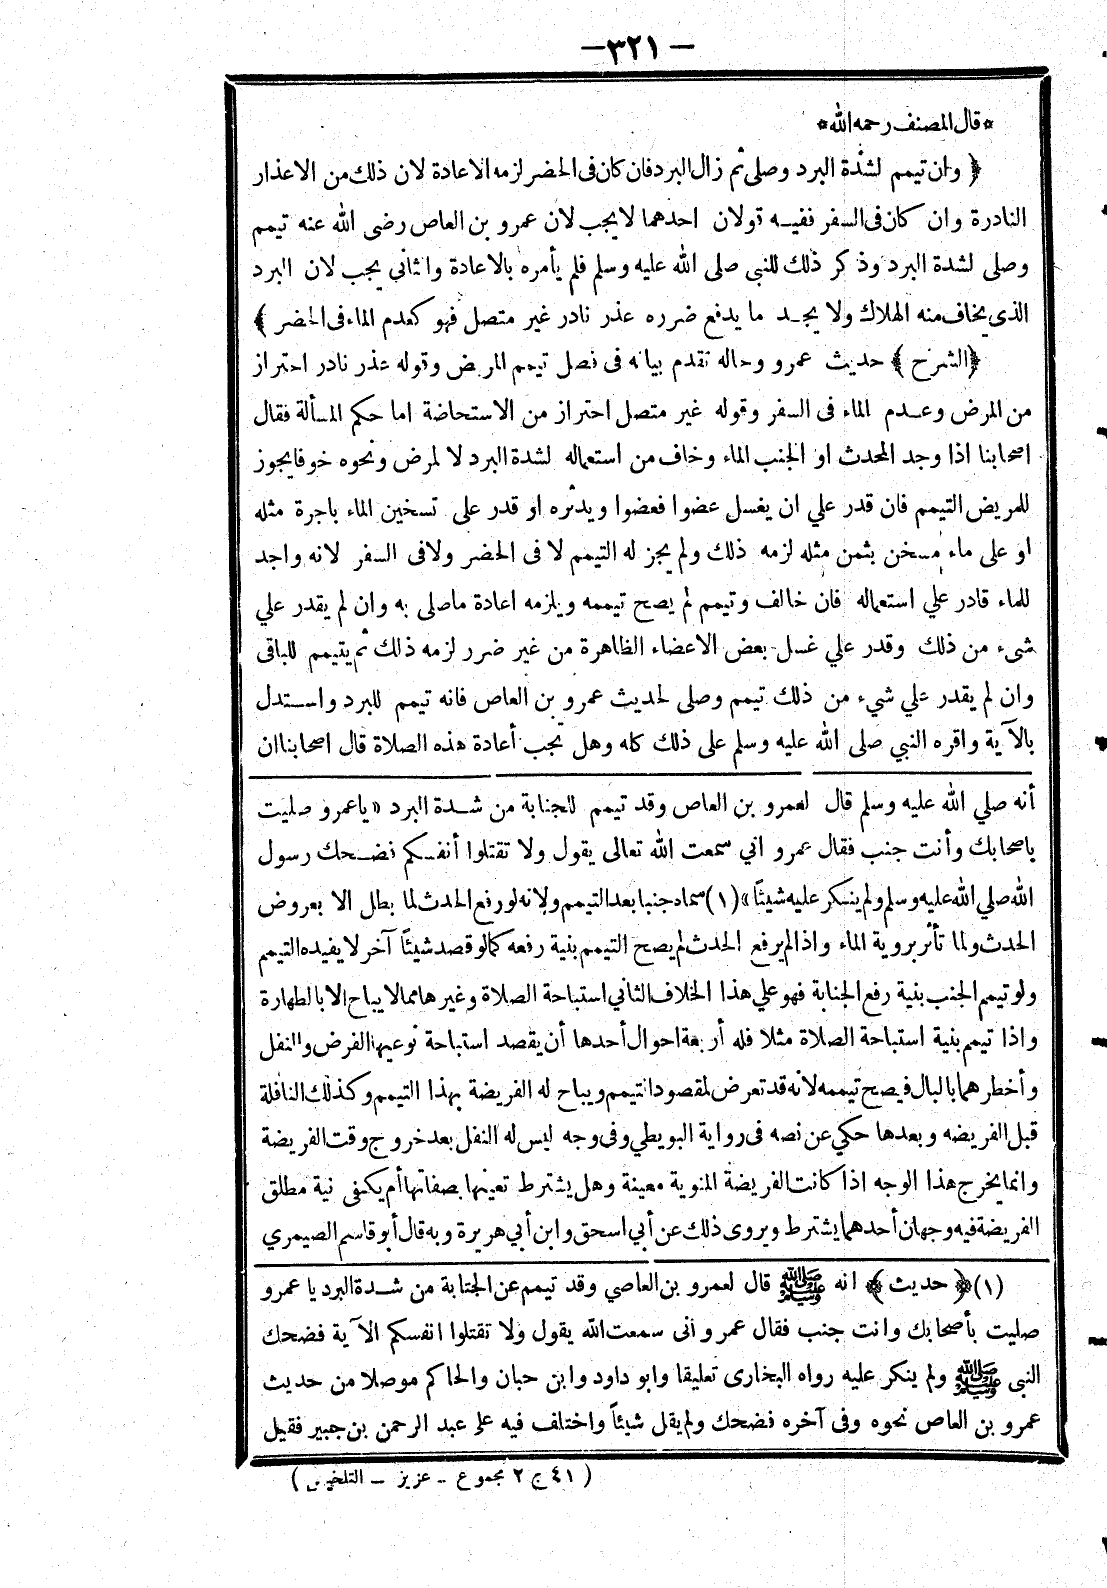 — ٣٢١ —
* قال المصنف رحمه الله *
﴿ وان تيمم لشدة البرد وصلى ثم زال البرد فان كان فى الحضر لزمه الاعادة لان ذلك من الاعذار
النادرة وان كان فى السفر ففيه قولان احدهما لا يجب لان عمرو بن العاص رضى الله عنه تيمم
وصلى لشدة البرد وذكر ذلك للنبي صلى الله عليه وسلم فلم يأمره بالاعادة والثاني يجب لان البرد
الذى يخاف منه الهلاك ولا يجد ما يدفع ضرره عذر نادر غير متصل فهو كعدم الماء فى الحضر ﴾
﴿ الشرح ﴾ حديث عمرو وحاله تقدم بيانه فى فصل تيمم المريض وقوله عذر نادر احتراز
من المرض وعدم الماء فى السفر وقوله غير متصل احتراز من الاستحاضة اما حكم المسألة فقال
اصحابنا اذا وجد المحدث او الجنب الماء وخاف من استعماله لشدة البرد لا لمرض ونحوه خوفا يجوز
للمريض التيمم فان قدر علي ان يغسل عضوا فعضوا ويدثره او قدر على تسخين الماء باجرة مثله
او على ماء مسخن بثمن مثله لزمه ذلك ولم يجز له التيمم لا فى الحضر ولا فى السفر لانه واجد
للماء قادر علي استعماله فان خالف وتيمم لم يصح تيممه ويلزمه اعادة ما صلى به وان لم يقدر علي
شىء من ذلك وقدر علي غسل بعض الاعضاء الظاهرة من غير ضرر لزمه ذلك ثم يتيمم للباقى
وان لم يقدر علي شيء من ذلك تيمم وصلى لحديث عمرو بن العاص فانه تيمم للبرد واستدل
بالآية واقره النبي صلى الله عليه وسلم على ذلك كله وهل تجب أعادة هذه الصلاة قال اصحابنا ان
أنه صلي الله عليه وسلم قال لعمرو بن العاص وقد تيمم للجنابة من شدة البرد « يا عمرو صليت
باصحابك وأنت جنب فقال عمرو اني سمعت الله تعالى يقول ولا تقتلوا أنفسكم فضحك رسول
الله صلي الله عليه وسلم ولم ينكر عليه شيئاً » (١) سماه جنبا بعد التيمم ولانه لو رفع الحدث لما بطل الا بعروض
الحدث ولما تأثر بروية الماء واذا لم يرفع الحدث لم يصح التيمم بنية رفعه كما لو قصد شيئاً آخر لا يفيده التيمم
ولو تيمم الجنب بنية رفع الجنابة فهو علي هذا الخلاف الثاني استباحة الصلاة وغيرها مما لا يباح الا بالطهارة
واذا تيمم بنية استباحة الصلاة مثلا فله أربعة احوال أحدها أن يقصد استباحة نوعيها الفرض والنفل
وأخطرهما بالبال فيصح تيممه لانه قد تعرض لمقصود التيمم ويباح له الفريضة بهذا التيمم وكذلك النافلة
قبل الفريضه وبعدها حكي عن نصه فى رواية البويطي وفى وجه ليس له النفل بعد خروج وقت الفريضة
وانما يخرج هذا الوجه اذا كانت الفريضة المنوية معينة وهل يشترط تعيينها بصفاتها أم يكفى نية مطلق
الفريضة فيه وجهان أحدهما يشترط ويروى ذلك عن أبي اسحق وابن أبي هريرة وبه قال أبو قاسم الصيمري
(١) ﴿ حديث ﴾ انه ﷺ قال لعمرو بن العاصي وقد تيمم عن الجنابة من شدة البرد يا عمرو
صليت بأصحابك وانت جنب فقال عمرو انى سمعت الله يقول ولا تقتلوا انفسكم الآية فضحك
النبى ﷺ ولم ينكر عليه رواه البخارى تعليقا وابو داود وابن حبان والحاكم موصلا من حديث
عمرو بن العاص نحوه وفى آخره فضحك ولم يقل شيئاً واختلف فيه على عبد الرحمن بن جبير فقيل
( ٤١ ج ٢ مجموع – عزيز – التلخيص )